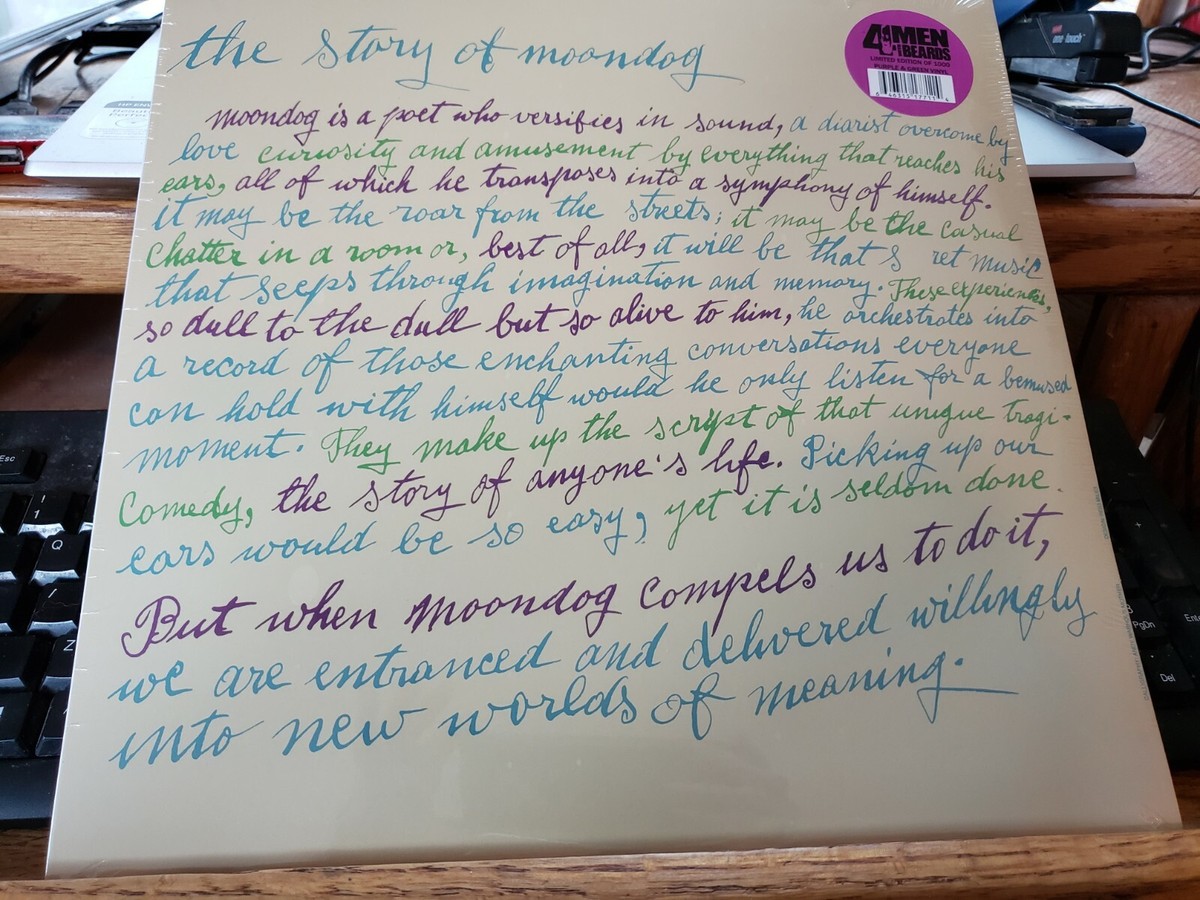 the story of moondog
4 MEN
with
BEARDS
LIMITED EDITION OF 1000
PURPLE & GREEN VINYL
moondog is a poet who versifies in sound, a diarist overcome by
love curiosity and amusement by everything that reaches his
ears, all of which he transposes into a symphony of himself.
it may be the roar from the streets; it may be the casual
chatter in a room or, best of all, it will be that s ret music
that seeps through imagination and memory. These experiences,
so dull to the dull but so alive to him, he orchestrates into
a record of those enchanting conversations everyone
can hold with himself would he only listen for a bemused
moment. They make up the script of that unique tragi-
comedy, the story of anyone's life. Picking up our
ears would be so easy, yet it is seldom done.
But when moondog compels us to do it,
we are entranced and delivered willingly
into new worlds of meaning.
one touch
Esc
1
Q
Z
+
PgDn
Ent
Del